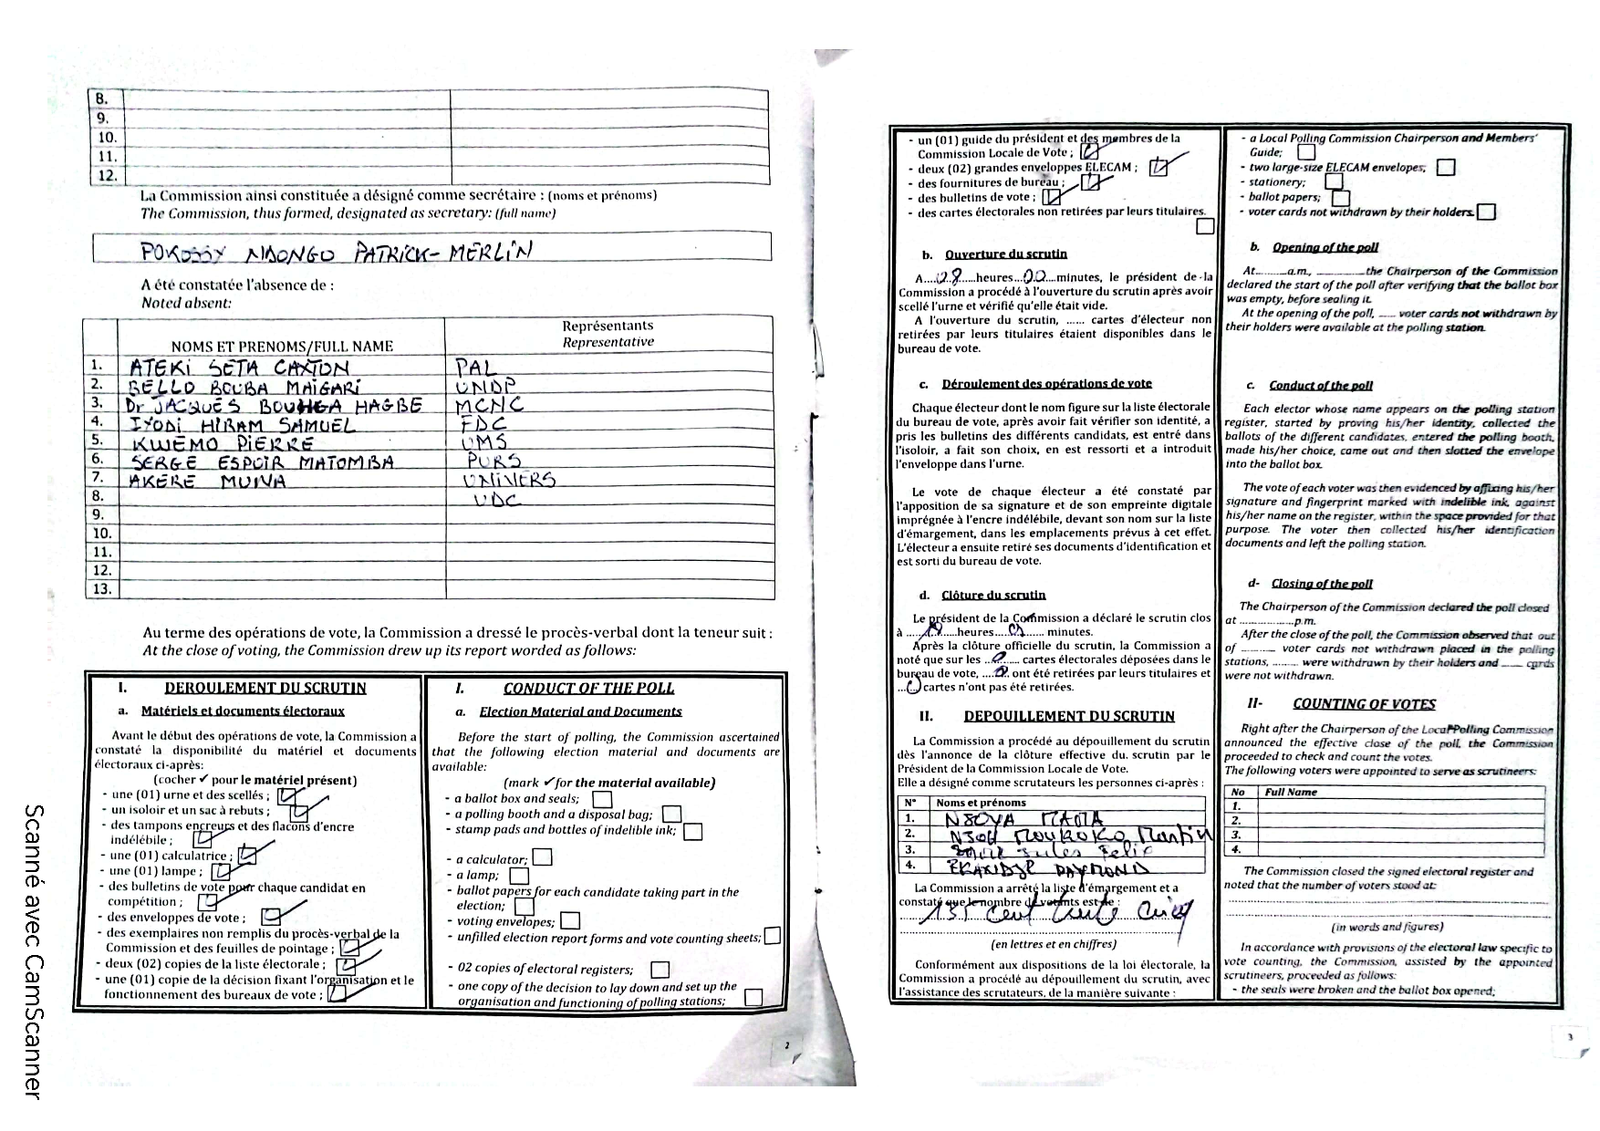 8.
9.
10.
11.
12.
La Commission ainsi constituée a désigné comme secrétaire : (noms et prénoms)
The Commission, thus formed, designated as secretary: (full name)
POKOSSY NDONGO PATRICK-MERLIN
A été constatée l'absence de :
Noted absent:
NOMS ET PRENOMS/FULL NAME
Représentants
Representative
1. ATEKI SETA CAXTON PAL
2. BELLO BOUBA MAIGARI UNDP
3. Dr JACQUES BOUHGA HAGBE MCNC
4. IYODI HIRAM SAMUEL FDC
5. KWEMO PIERRE UMS
6. SERGE ESPOIR MATOMBA PURS
7. AKERE MUNA UNIVERS
8. UDC
9.
10.
11.
12.
13.
Au terme des opérations de vote, la Commission a dressé le procès-verbal dont la teneur suit :
At the close of voting, the Commission drew up its report worded as follows:
I. DEROULEMENT DU SCRUTIN
a. Matériels et documents électoraux
Avant le début des opérations de vote, la Commission a
constaté la disponibilité du matériel et documents
électoraux ci-après:
(cocher ✓ pour le matériel présent)
- une (01) urne et des scellés ;
- un isoloir et un sac à rebuts ;
- des tampons encreurs et des flacons d'encre
indélébile ;
- une (01) calculatrice ;
- une (01) lampe ;
- des bulletins de vote pour chaque candidat en
compétition ;
- des enveloppes de vote ;
- des exemplaires non remplis du procès-verbal de la
Commission et des feuilles de pointage ;
- deux (02) copies de la liste électorale ;
- une (01) copie de la décision fixant l'organisation et le
fonctionnement des bureaux de vote ;
I. CONDUCT OF THE POLL
a. Election Material and Documents
Before the start of polling, the Commission ascertained
that the following election material and documents are
available:
(mark ✓ for the material available)
- a ballot box and seals;
- a polling booth and a disposal bag;
- stamp pads and bottles of indelible ink;
- a calculator;
- a lamp;
- ballot papers for each candidate taking part in the
election;
- voting envelopes;
- unfilled election report forms and vote counting sheets;
- 02 copies of electoral registers;
- one copy of the decision to lay down and set up the
organisation and functioning of polling stations;
2
- un (01) guide du président et des membres de la
Commission Locale de Vote ;
- deux (02) grandes enveloppes ELECAM ;
- des fournitures de bureau ;
- des bulletins de vote ;
- des cartes électorales non retirées par leurs titulaires.
b. Ouverture du scrutin
A....08....heures...00....minutes, le président de la
Commission a procédé à l'ouverture du scrutin après avoir
scellé l'urne et vérifié qu'elle était vide.
A l'ouverture du scrutin, ...... cartes d'électeur non
retirées par leurs titulaires étaient disponibles dans le
bureau de vote.
c. Déroulement des opérations de vote
Chaque électeur dont le nom figure sur la liste électorale
du bureau de vote, après avoir fait vérifier son identité, a
pris les bulletins des différents candidats, est entré dans
l'isoloir, a fait son choix, en est ressorti et a introduit
l'enveloppe dans l'urne.
Le vote de chaque électeur a été constaté par
l'apposition de sa signature et de son empreinte digitale
imprégnée à l'encre indélébile, devant son nom sur la liste
d'émargement, dans les emplacements prévus à cet effet.
L'électeur a ensuite retiré ses documents d'identification et
est sorti du bureau de vote.
d. Clôture du scrutin
Le président de la Commission a déclaré le scrutin clos
à ............heures............ minutes.
Après la clôture officielle du scrutin, la Commission a
noté que sur les ............ cartes électorales déposées dans le
bureau de vote, ............ ont été retirées par leurs titulaires et
............ cartes n'ont pas été retirées.
II. DEPOUILLEMENT DU SCRUTIN
La Commission a procédé au dépouillement du scrutin
dès l'annonce de la clôture effective du scrutin par le
Président de la Commission Locale de Vote.
Elle a désigné comme scrutateurs les personnes ci-après :
N° Noms et prénoms
1. NJOYA MAMA
2. NJOH MOUKOKO Martin
3. Jules
4. RAYMOND
La Commission a arrêté la liste d'émargement et a
constaté que le nombre de votants est de :
135 cent trente cinq
(en lettres et en chiffres)
Conformément aux dispositions de la loi électorale, la
Commission a procédé au dépouillement du scrutin, avec
l'assistance des scrutateurs, de la manière suivante :
- a Local Polling Commission Chairperson and Members'
Guide;
- two large-size ELECAM envelopes;
- stationery;
- ballot papers;
- voter cards not withdrawn by their holders.
b. Opening of the poll
At..........a.m., ..............the Chairperson of the Commission
declared the start of the poll after verifying that the ballot box
was empty, before sealing it.
At the opening of the poll, ...... voter cards not withdrawn by
their holders were available at the polling station.
c. Conduct of the poll
Each elector whose name appears on the polling station
register, started by proving his/her identity, collected the
ballots of the different candidates, entered the polling booth,
made his/her choice, came out and then slotted the envelope
into the ballot box.
The vote of each voter was then evidenced by affixing his/her
signature and fingerprint marked with indelible ink, against
his/her name on the register, within the space provided for that
purpose. The voter then collected his/her identification
documents and left the polling station.
d- Closing of the poll
The Chairperson of the Commission declared the poll closed
at ................p.m.
After the close of the poll, the Commission observed that out
of .......... voter cards not withdrawn placed in the polling
stations, ........ were withdrawn by their holders and ...... cards
were not withdrawn.
II- COUNTING OF VOTES
Right after the Chairperson of the Local Polling Commission
announced the effective close of the poll, the Commission
proceeded to check and count the votes.
The following voters were appointed to serve as scrutineers:
No Full Name
1.
2.
3.
4.
The Commission closed the signed electoral register and
noted that the number of voters stood at:
(in words and figures)
In accordance with provisions of the electoral law specific to
vote counting, the Commission, assisted by the appointed
scrutineers, proceeded as follows:
- the seals were broken and the ballot box opened;
3
Scanné avec CamScanner